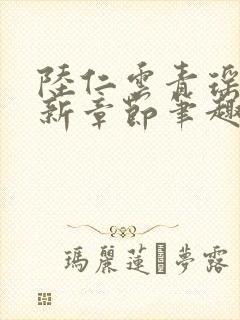 陸仁雲青瑶
新章節筆趣
瑪麗蓮 夢露